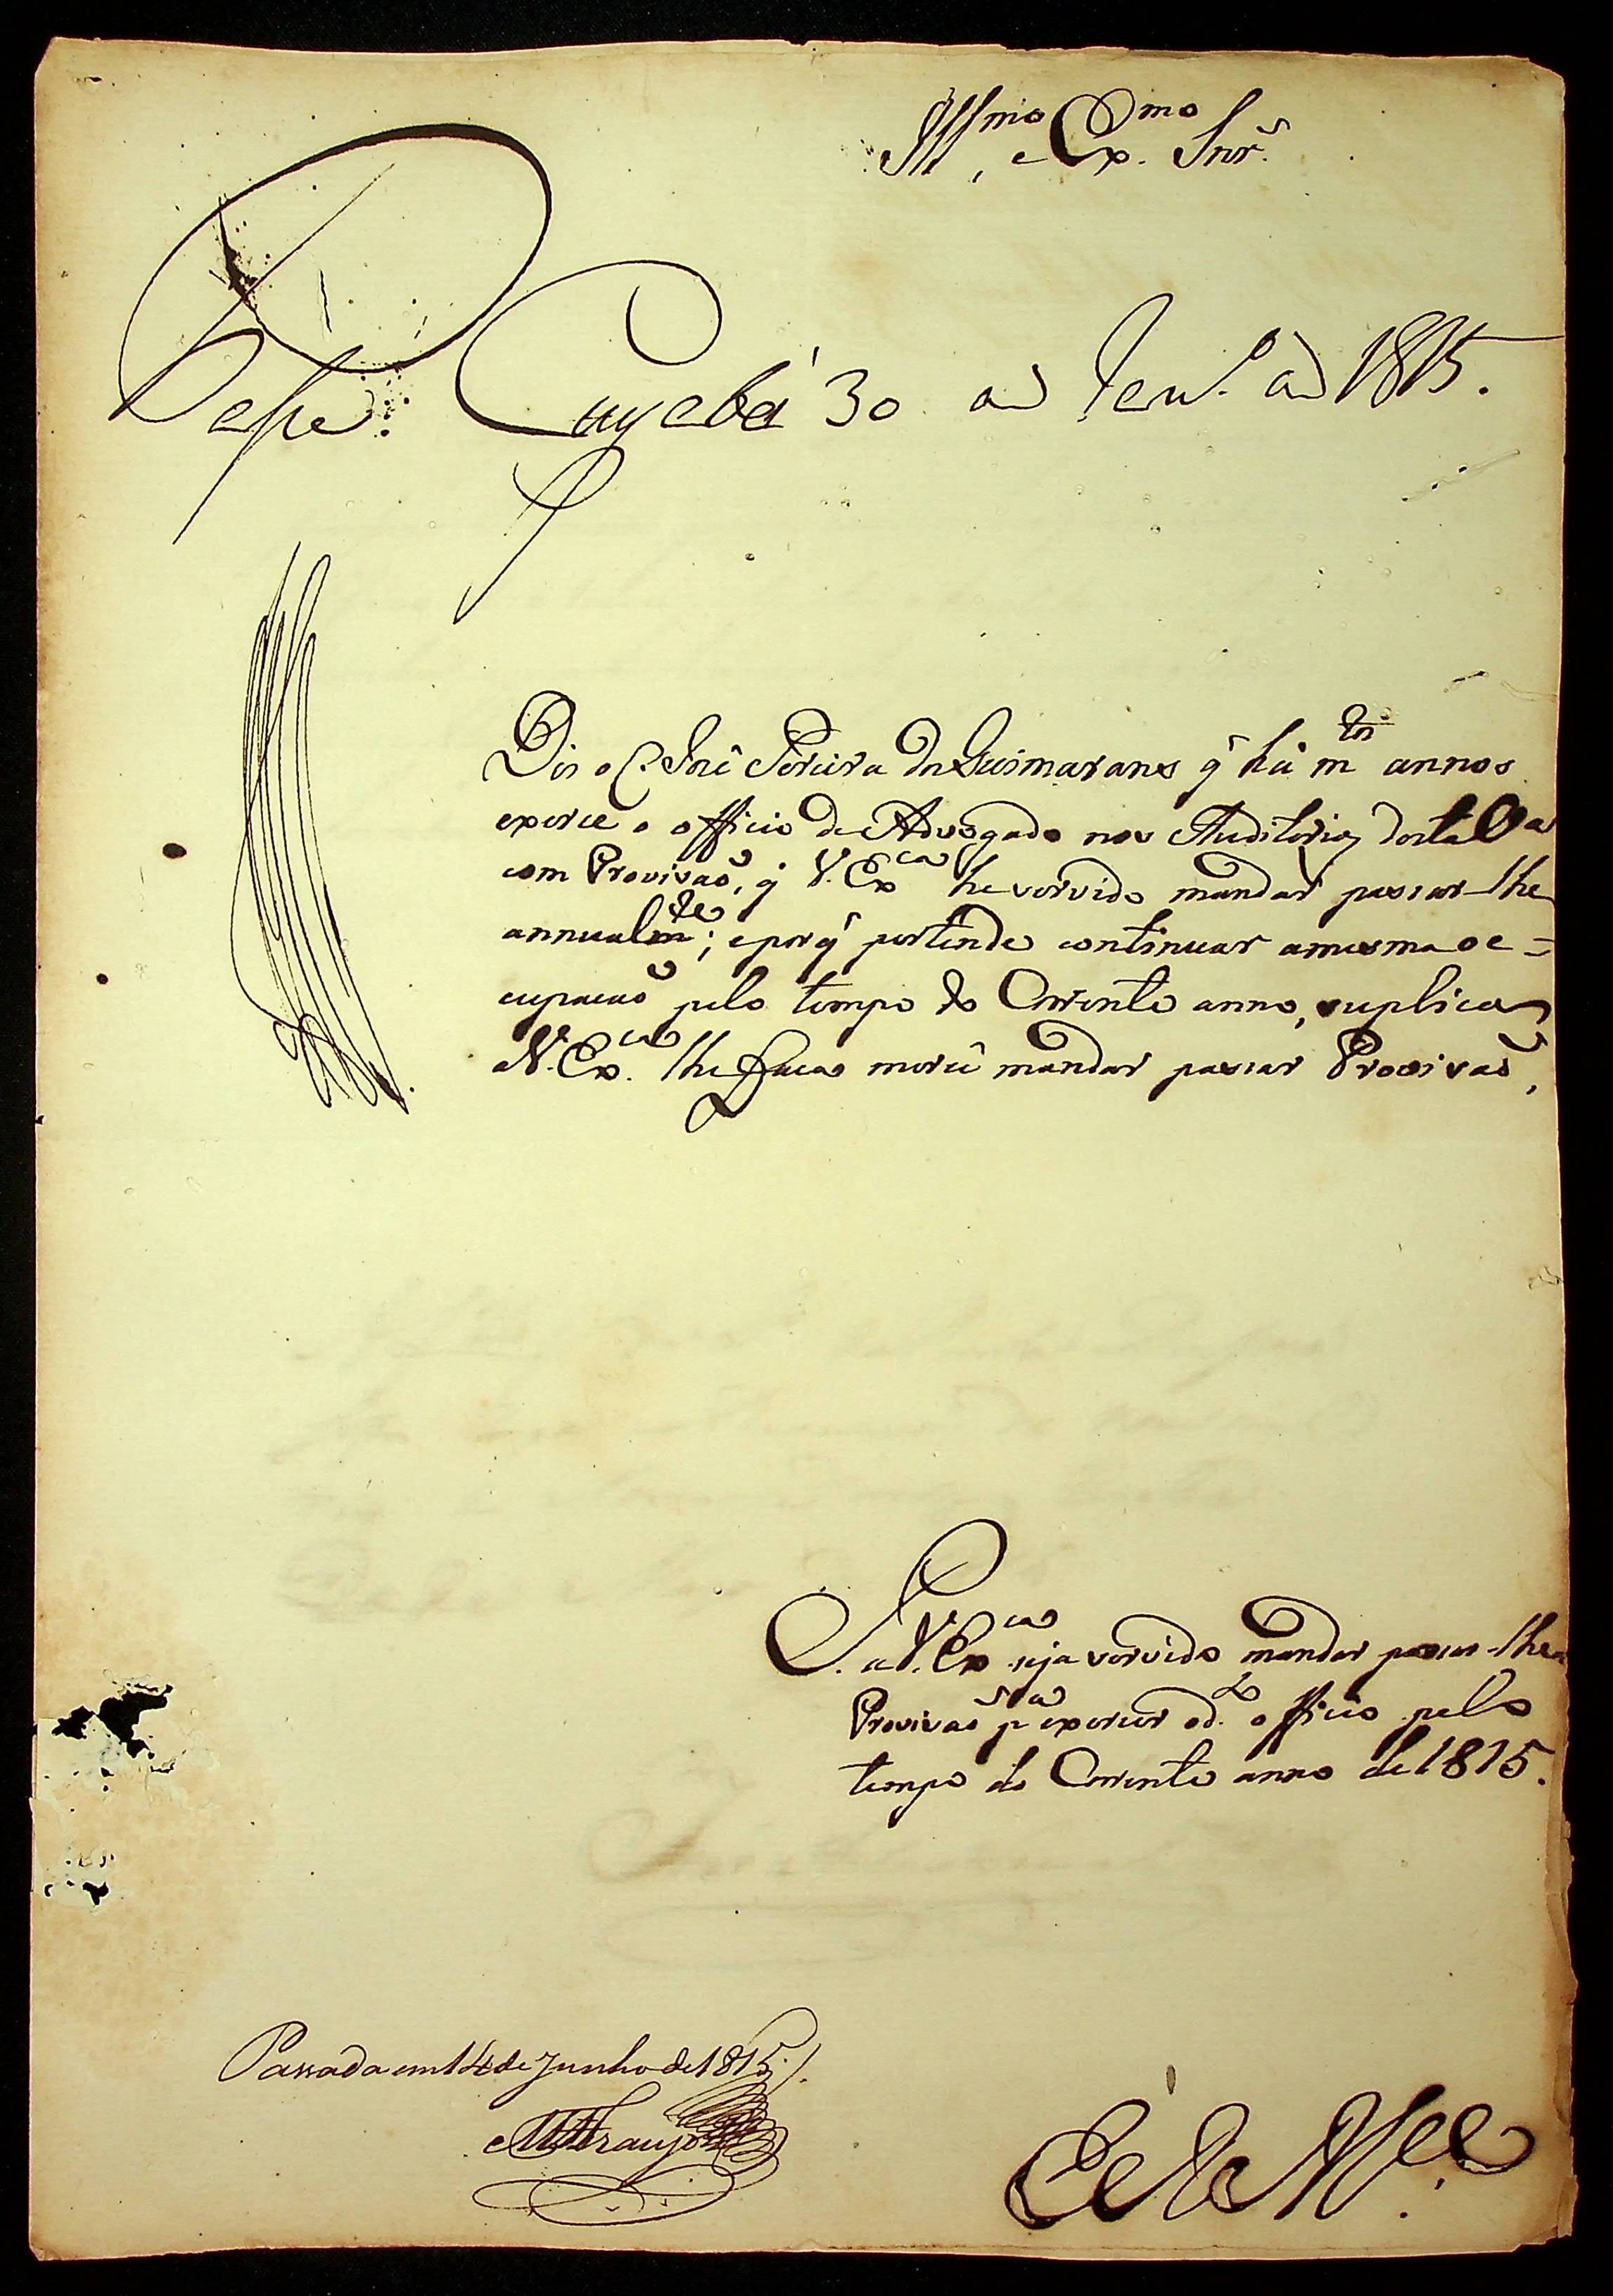 Ill.mo, e Ex.mo Snr.
Passe. Cuyabá 30 de Jan.ro de 1815.
Dis o C. José Pereira de Guimaraens q̃ há m.tos annos
exerce o officio de Advogado nos Auditorios desta V.a
com Provizaõ, q̃ V. Ex.ca he servido mandar passar-lhe
annualm.te; e porq̃ pertende continuar a mesma oc=
cupacaõ pelo tempo do Corrente anno, suplica a
V. Ex.ca lhe faça mercê mandar passar Provizaõ,
P. a V. Ex.ca seja servido mandar passar-lhe
Provizaõ p.a exercer o d.o officio pelo
tempo do Corrente anno de 1815.
Passada em 14 de Junho de 1815./.
Araujo
E R M.ce